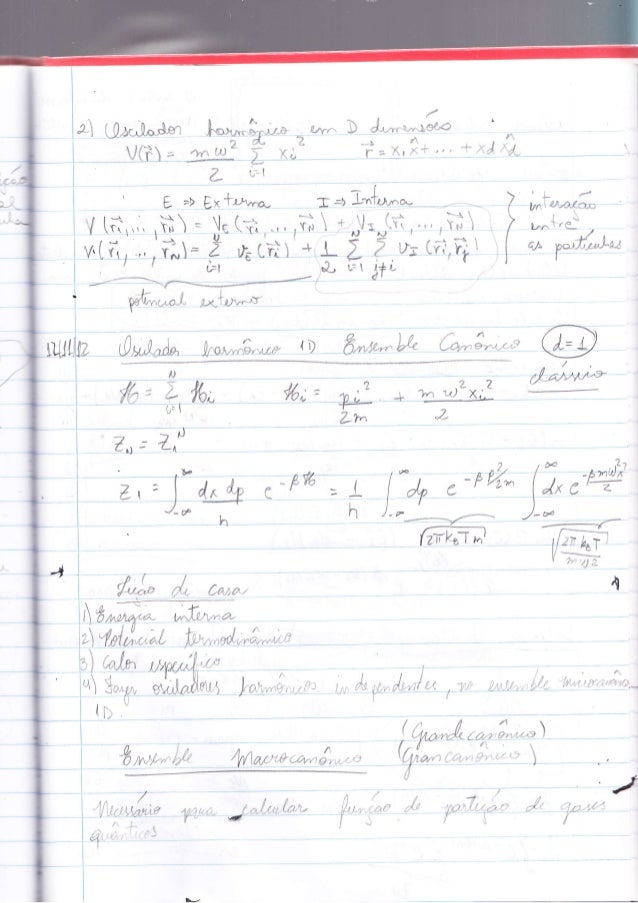 2) Oscilador harmônico em D dimensões
V(r⃗) = mω²/2 Σ_{i=1}^{d} xi²    r⃗ = x₁x̂ + ... + xd x̂d
E ⇒ Externa    I ⇒ Interna
V(r⃗₁, ..., r⃗N) = VE(r⃗₁, ..., r⃗N) + VI(r⃗₁, ..., r⃗N)    } interação entre as partículas
V(r⃗₁, ..., r⃗N) = Σ_{i=1}^{N} vE(r⃗i) + 1/2 Σ_{i=1}^{N} Σ_{j≠i}^{N} vI(r⃗i, r⃗j)
potencial externo
12/11/12 Oscilador harmônico 1D Ensemble Canônico (d=1)
clássico
ℋ = Σ_{i=1}^{N} ℋi    ℋi = pi²/2m + mω²xi²/2
ZN = Z₁^N
Z₁ = ∫_{-∞}^{∞} dx dp/h e^{-βℋ} = 1/h ∫_{-∞}^{∞} dp e^{-βp²/2m} ∫_{-∞}^{∞} dx e^{-βmω²x²/2}
√(2πkBTm)    √(2πkBT/mω²)
Lição de casa
1) Energia interna
2) Potencial termodinâmico
3) Calor específico
4) Fazer osciladores harmônicos independentes, no ensemble microcanônico
1D.
(Grande canônico)
Ensemble Macrocanônico (Grancanônico)
Necessário para calcular função de partição de gases
quânticos